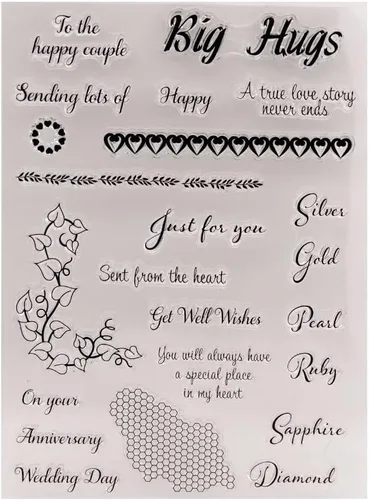 To the
happy couple
Big Hugs
Sending lots of
Happy
A true love story
never ends
Just for you
Silver
Sent from the heart
Gold
Get Well Wishes
Pearl
You will always have
a special place
in my heart
Ruby
On your
Anniversary
Sapphire
Wedding Day
Diamond